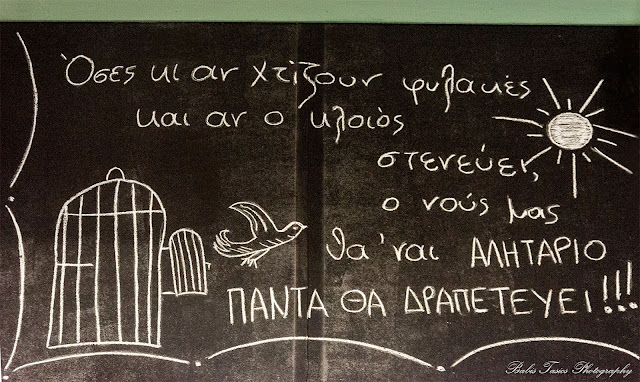 Όσες κι αν χτίζουν φυλακές
και αν ο κλοιός
στενεύει,
ο νούς μας
θα 'ναι ΑΛΗΤΑΡΙΟ
ΠΑΝΤΑ ΘΑ ΔΡΑΠΕΤΕΥΕΙ!!!
Babis Tasios Photography